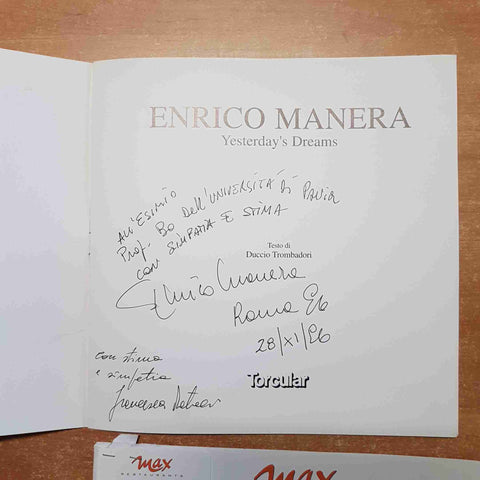 ENRICO MANERA
Yesterday's Dreams
All'ESIMIO
Prof. Bo dell'UNIVERSITÀ DI PAVIA
CON SIMPATIA E STIMA
Testo di
Duccio Trombadori
Enrico Manera
Roma
28/XI/96
con stima
e simpatia
Francesca
Torcular
max
RESTAURANTS
max